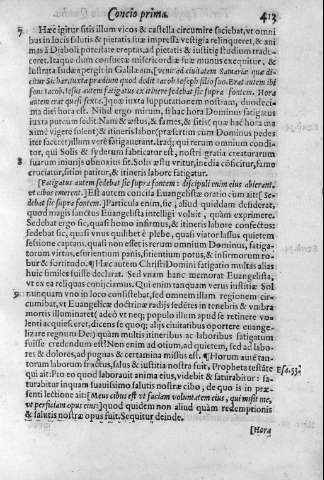 Concio prima. 413
7 Hæc igitur satis illum vicos & castella circumire faciebat, vt omni
bus in locis salutis & pietatis suæ impressa vestigia relinqueret, & ani
mas à Diaboli potestate ereptas, ad pietatis & iustitiæ studium tradu
ceret. Itaque dum consuetæ misericordiæ suæ munus exequitur, &
lustrata Iudæa pergit in Galilæam, [venit ad ciuitatem Samariæ quæ di
citur Sichar, iuxta prædium quod dedit Iacob Ioseph filio suo. Erat autem ibi
fons Iacob. Iesus autem fatigatus ex itinere sedebat sic supra fontem. Hora
autem erat quasi sexta,] quæ iuxta supputationem nostram, duodeci-
ma diei hora est. Nihil ergo mirum, si hac hora Dominus fatigatus
iuxta puteum sedit. Nam & æstus, & fames, & sitis (quæ hac hora ma
ximè vigere solent) & itineris labor (præsertim cum Dominus pedes
iter faceret) illum verè fatigauerant. Itaq; qui rerum omnium condi-
tor, qui Solis & syderum fabricator est, nostri gratia creaturarum
8 suarum iniurijs obnoxius fit. Solis æstu vritur, inedia cõficitur, fame
cruciatur, sitim patitur, & itineris labore fatigatur.
[Fatigatus autem sedebat sic supra fontem: discipuli enim eius abierant,
vt cibos emerent.] Est autem concisa Euangelistæ oratio cum ait [Se-
debat sic supra fontem.] Particula enim, sic, aliud quiddam desiderat,
quod magis sanctus Euangelista intelligi voluit, quàm exprimere.
Sedebat ergo sic, quasi homo infirmus, & itineris labore confectus:
sedebat sic, quasi vnus quilibet è plebe, quasi viator lassus quietem
sessione captans, quasi non esset is rerum omnium Dominus, fatiga-
torum virtus, esurientium panis, sitientium potus, & infirmorum ro-
bur & fortitudo. ¶ Hæc autem Christi Domini fatigatio multis alias
huic similes fuisse declarat. Sed vnam hanc memorat Euangelista,
vt ex ea reliquas conijciamus. Qui enim tanquam verus iustitiæ Sol
9 nunquam vno in loco consistebat, sed omnem illam regionem cir-
cumibat, vt Euangelicæ doctrinæ radijs sedẽtes in tenebris & vmbra
mortis illuminaret (adeò vt neq; populo illum apud se retinere vo-
lenti acquiesceret, dicens se quoq; alijs ciuitatibus oportere euange-
lizare regnum Dei) quàm multis itineribus ac laboribus fatigatum
fuisse credendum est? Non enim ad otium, ad quietem, sed ad labo-
res & dolores, ad pugnas & certamina missus est. ¶ Horum autẽ tan-
torum laborum fructus, salus & iustitia nostra fuit, Propheta testãte
qui ait: Pro eo quod laborauit anima eius, videbit & saturabitur: sa- Esa. 53.
turabitur inquam suauissimo salutis nostræ cibo, de quo is in præ-
senti lectione ait: [Meus cibus est vt faciam voluntatem eius, qui misit me,
vt perficiam opus eius:] quod quidem non aliud quàm redemptionis
& salutis nostræ opus fuit. Sequitur deinde.
[Hora